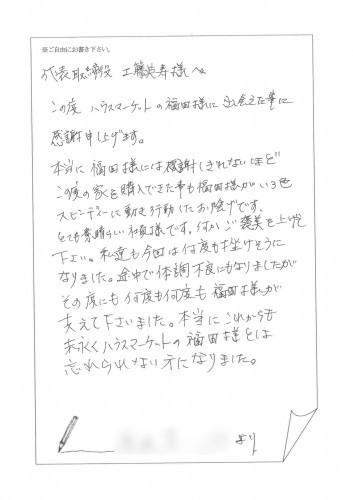 ※ご自由にお書き下さい。
代表取締役 工藤英寿様へ
この度 ハウスマーケットの福田様に出会えた事に
感謝申し上げます。
本当に福田様には感謝しきれないほど
この度の家を購入できた事も福田様がいろ色
スピーディーに動き行動したお陰げです。
とても素晴らしい社員様です。何かご褒美を上げて
下さい。私達も今回は何度も挫けそうに
なりました。途中で体調不良にもなりましたが
その度にも何度も何度も福田様が
支えて下さいました。本当にこれからも
末永くハウスマーケットの福田様とは
忘れられない方になりました。
より